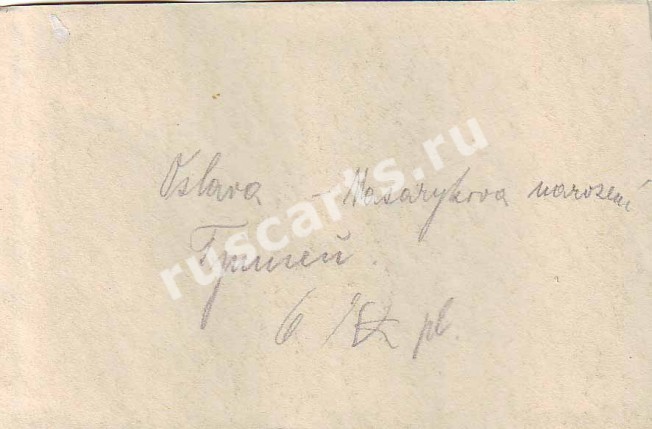 Oslava - Masarykova narození
6 pl.
ruscards.ru